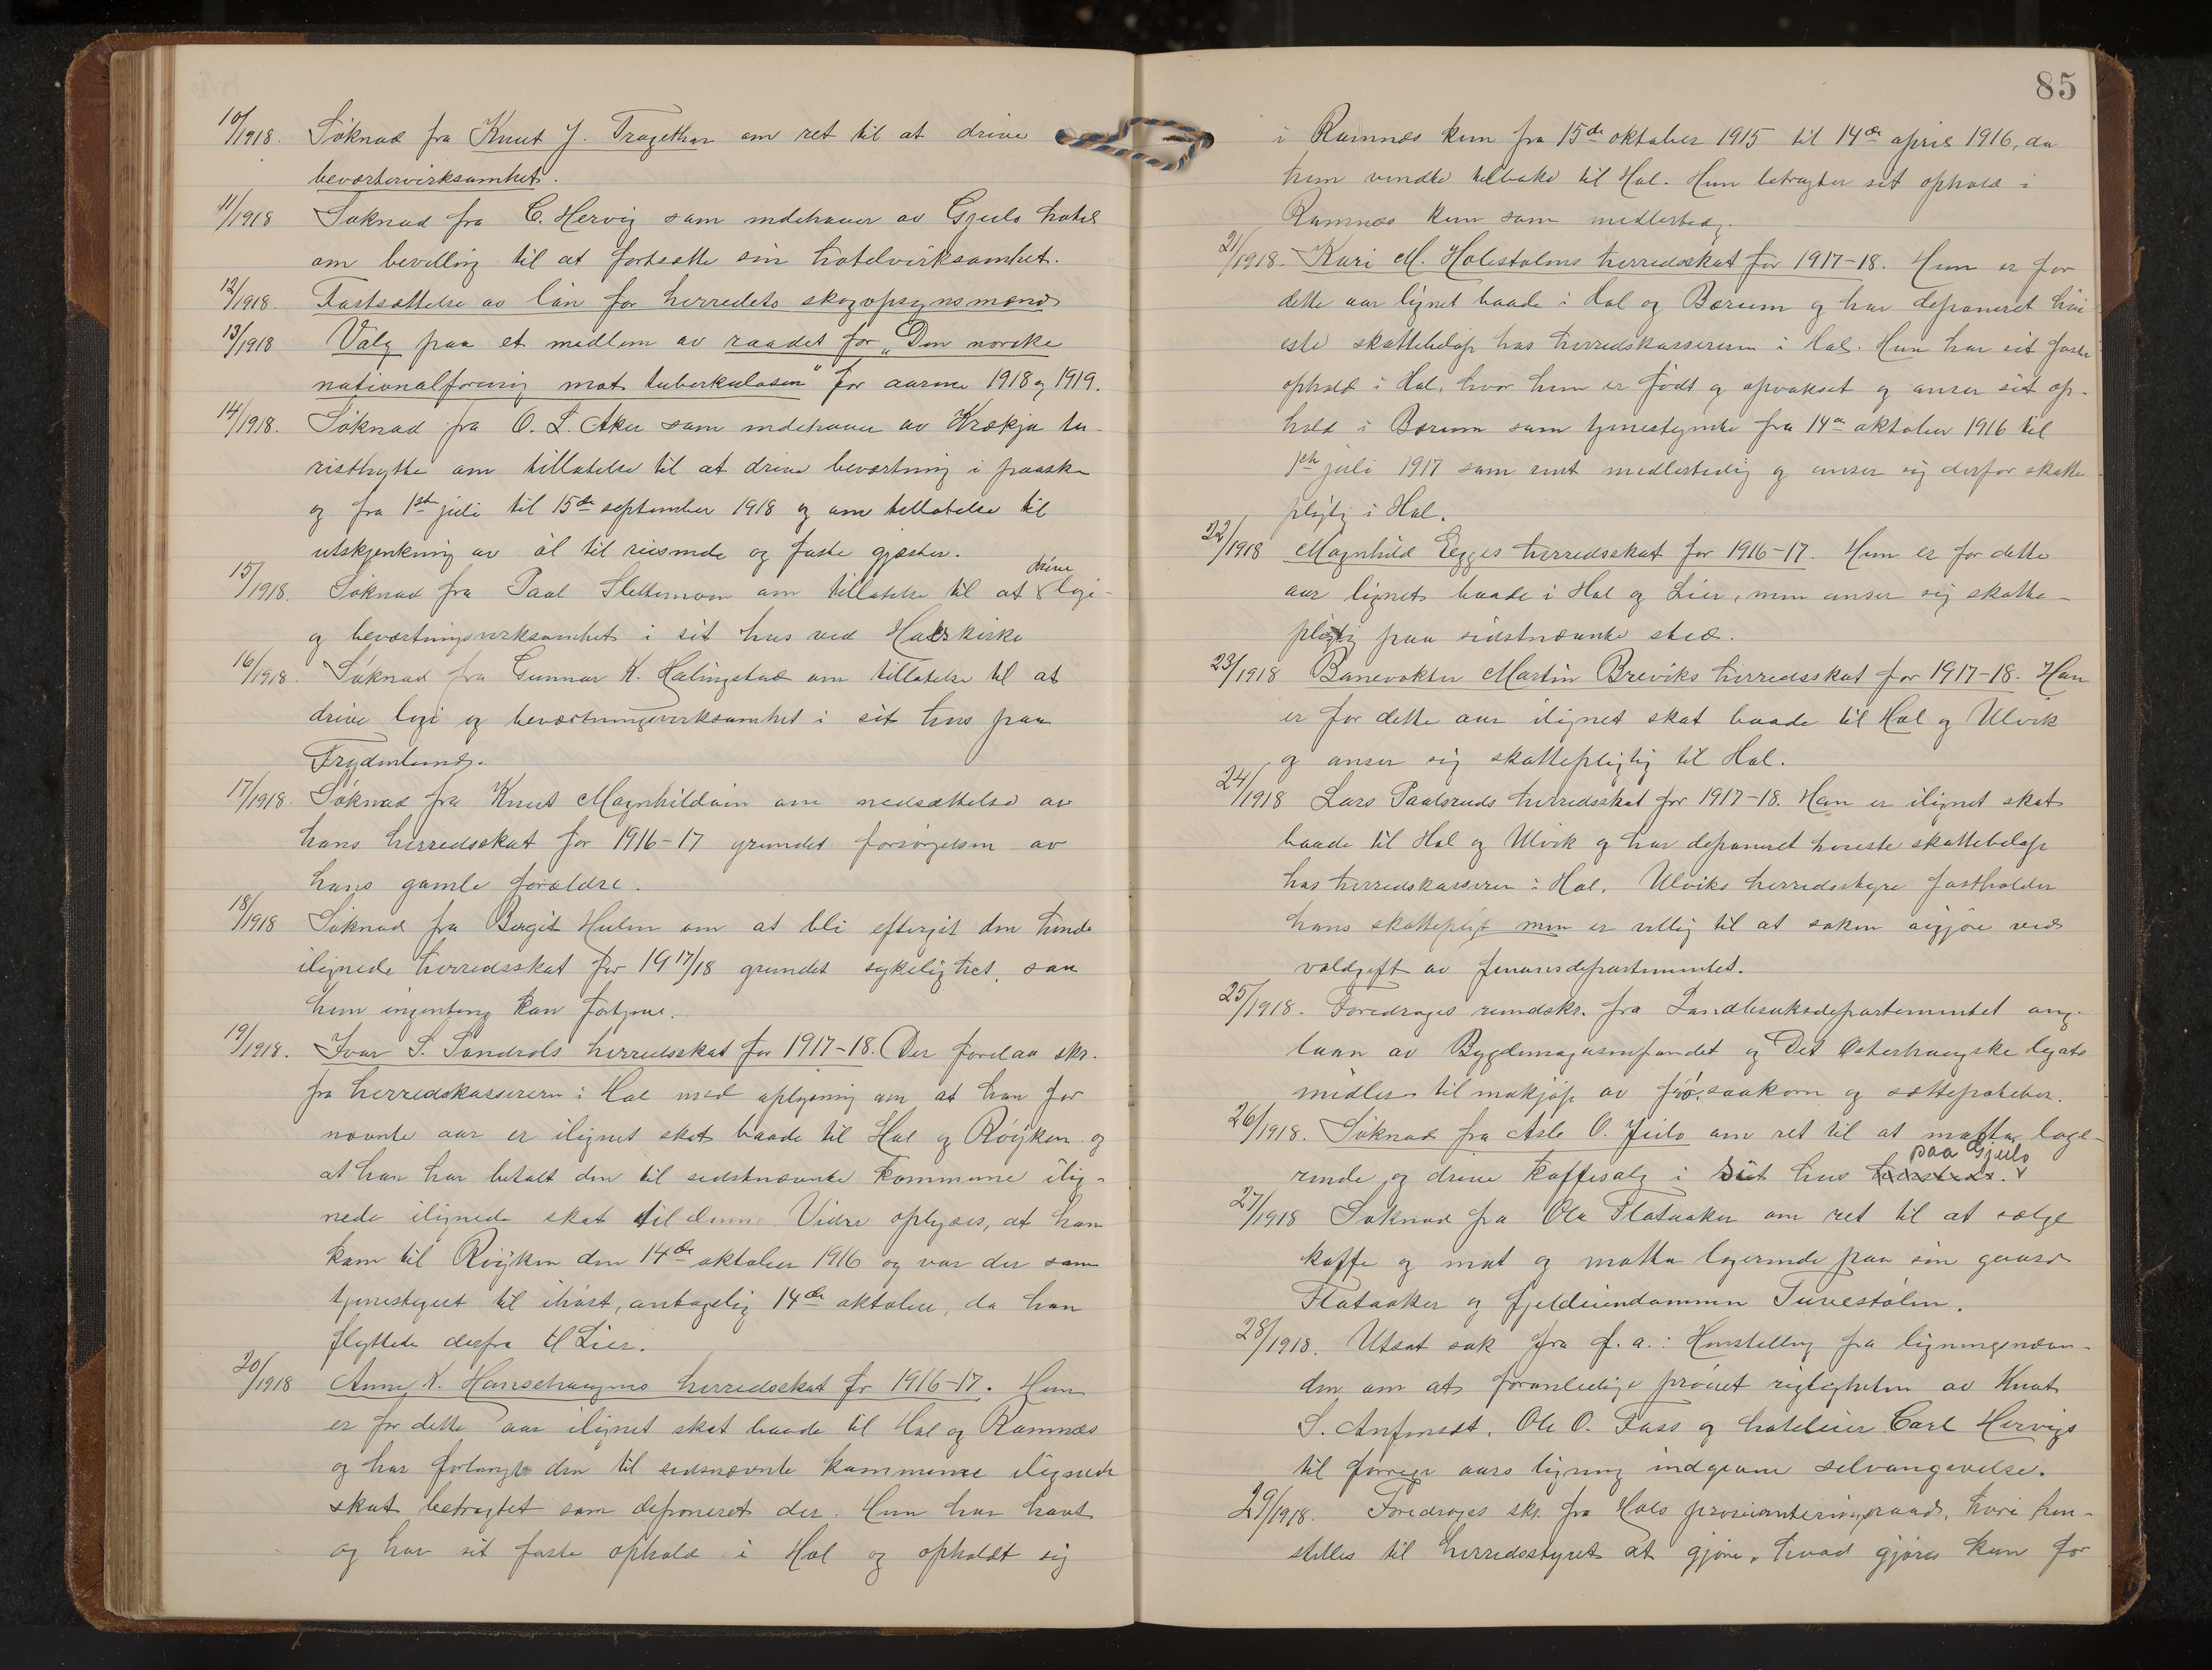 10/1918. Søknad fra Knut J. Tragethon om ret til at drive
beværtervirksamhet.
11/1918 Søknad fra C. Hervig som indehaver av Gjeilo hotel
om bevilling til at fortsætte sin hotelvirksamhet.
12/1918. Fastsættelse av løn for herredets skogopsynsmænd
13/1918 Valg paa et medlem av raadet for „Den norske
nationalforenig mot tuberkulosen" for aarene 1918 og 1919.
14/1918. Søknad fra O. L. Aker som indehaver av Krækja tu-
risthytte om tillatelse til at drive beværtning i paaske
og fra 1ste juli til 15de september 1918 og om tillatelse til
utskjenkning av øl til reisende og faste gjæster.
15/1918. Søknad fra Paal Slettemoen om tillatelse til at drive logi-
og beværtningsvirksamhet i sit hus ved Hols kirke
16/1918. Søknad fra Gunnar K. Hallingstad om tillatelse til at
drive logi og beværtningsvirksamhet i sit hus paa
Frydenlund.
17/1918. Søknad fra Knut Magnhildøin om nedsættelse av
hans herredsskat for 1916-17 grundet forsørgelsen av
hans gamle forældre.
18/1918 Søknad fra Bergit Hulen om at bli eftergit den hende
ilignede herredsskat for 1917/18 grundet sykelighet, saa
hun ingenting kan fortjene.
19/1918. Ivar S. Sundrøls herredsskat for 1917-18. Der forelaa skr.
fra herredskassereren i Hol med oplysning om at han for
nævnte aar er ilignet skat baade til Hol og Røyken og
at han har betalt den til sidstnævnte kommune ilig-
nede ilignede skat til denne. Vidre oplyses, at han
kom til Røyken den 14de oktober 1916 og var der som
tjenestegut til ihøst, antagelig 14de oktober, da han
flyttede derfra til Lier.
20/1918 Anne K. Hanséhaugens herredsskat for 1916-17. Hun
er for dette aar ilignet skat baade til Hol og Ramnæs
og har forlangt den til sidsnævnte kommune ilignede
skat betragtet som deponeret der. Hun har havt
og har sit faste ophold i Hol og opholdt sig
85
i Ramnæs kun fra 15de oktober 1915 til 14de april 1916, da
hun vendte tilbake til Hol. Hun betragter sit ophold i
Ramnæs kun som midlertidig.
21/1918. Kari M. Holestølens herredsskat for 1917-18. Hun er for
dette aar lignet baade i Hol og Bærum og har deponeret høi
este skattebeløp hos herredskassereren i Hol. Hun har sit faste
ophold i Hol, hvor hun er født og opvokset og anser sit op-
hold i Bærum som tjenestejente fra 14de oktober 1916 til
1ste juli 1917 som rent midlertidig og anser sig derfor skatte
pligtig i Hol.
22/1918 Magnhild Egges herredsskat for 1916-17. Hun er for dette
aar lignet baade i Hol og Lier, men anser sig skatte-
pligtig paa sidstnævnte sted.
23/1918 Banevokter Martin Breviks herredsskat for 1917-18. Han
er for dette aar ilignet skat baade til Hol og Ulvik
og anser sig skattepligtig til Hol.
24/1918 Lars Paalsruds herredsskat for 1917-18. Han er ilignet skat
baade til Hol og Ulvik og har deponeret høieste skattebeløp
hos herredskasserer i Hol. Ulviks herredsstyre fastholder
hans skattepligt men er villig til at saken avgjøre ved
voldgift av finansdepartementet.
25/1918. Foredrages rundskr. fra Landbruksdepartementet ang.
laan av Bygdemagasinfondet og Det Osterhaugske legats
midler til inkjøp av frø, saakorn og sættepoteter.
26/1918. Søknad fra Asle O. Jeilo om ret til at motta loge-
rende og drive kaffesalg i sit hus paa Gjeilo.
27/1918 Søknad fra Ole Flataaker om ret til at sælge
kaffe og mat og motta logerende paa sin gaard
Flataaker og fjeldeiendommen Turestølen.
28/1918. Utsat sak fra f. a.: Henstilling fra ligningsnævn-
den om at foranledige prøvet rigtigheten av Knut
S. Anfinset, Ole O. Foss og hoteleier Carl Hervigs
til forrige aars ligning indgivne selvangivelse.
29/1918. Foredrages skr. fra Hols provianteringsraad, hvori hen-
stilles til herredsstyret at gjøre, hvad gjøres kan for